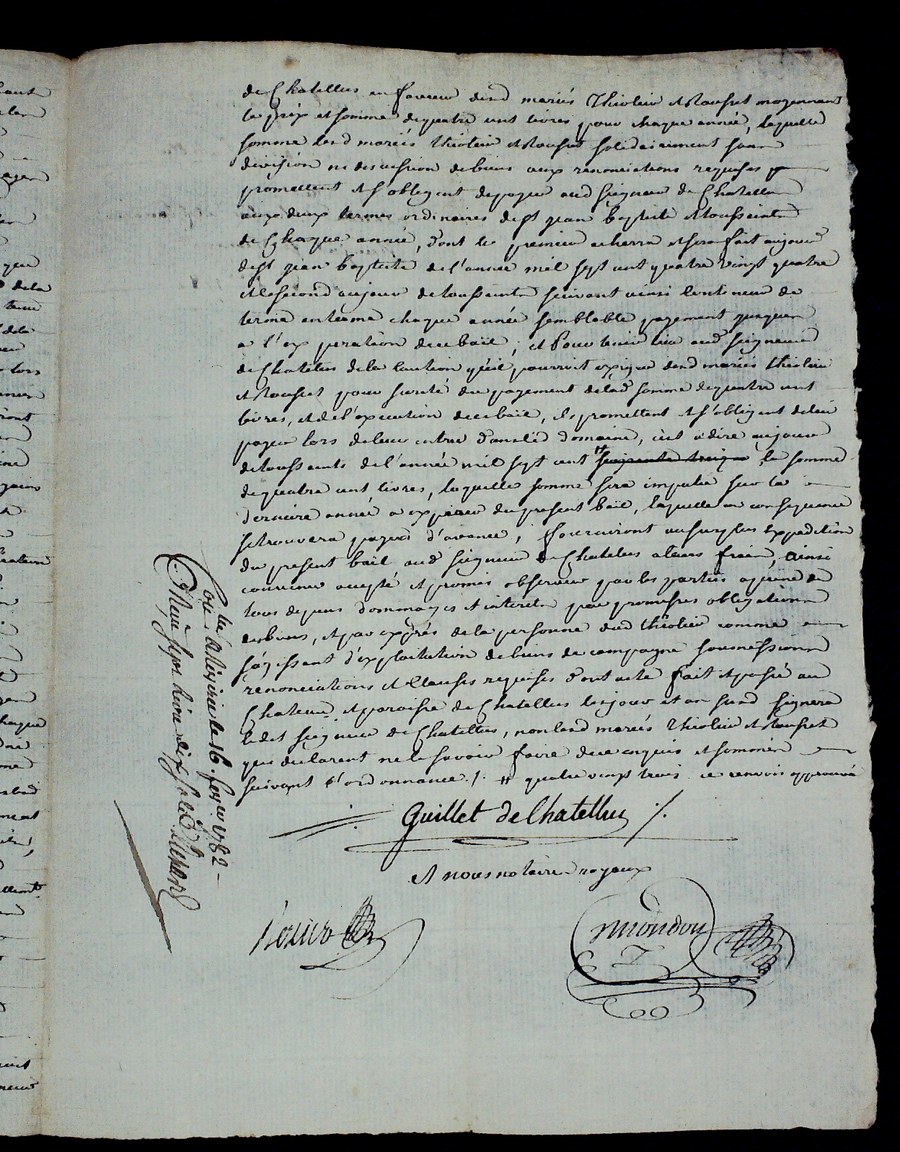 de Chatellus en faveur desd mariés Theolier et Rousset moyennant
le prix et somme de quatre cent livres pour chaque année, laquelle
somme lesd mariés theolier et Rousset solidairement sans
division ni discussion de biens aux renonciations requises
promettent et s'obligent de payer aud Seigneur de Chatellus
aux deux termes ordinaires de st jean Baptiste et toussaints
de Chaque année, dont le premier echerra et sera fait au jour
de st jean baptiste de l'année mil sept cent quatre vingt quatre
et le second au jour de toussaints suivant ainsi continuer de
terme en terme chaque année semblable payement jusques
a l'expiration de ce bail; et Pour tenir lieu aud Seigneur
de Chatellus de la caution qu'il pourroit exiger desd mariés theolier
et Rousset pour sureté du payement de lad somme de quatre cent
livres, et de l'execution de ce bail, ils promettent et s'obligent de lui
payer lors de leur entrée dans led domaine, c'est a dire au jour
de toussaints de l'année mil sept cent # la somme
de quatre cent livres, laquelle somme sera imputée sur la
derniere année a expirer du present bail, laquelle en consequence
se trouvera payée d'avance, fourniront au surplus expedition
du present bail aud Seigneur de Chatellus a leurs frais, ainsi
convenu accepté et promis observer par les parties a peine de
tous depens dommages et interets par promesses obligation
de biens, et par exprès de la personne dud theolier comme
s'agissant d'exploitation de biens de campagne soumissions
renonciations et Clauses requises dont acte fait et passé au
Chateau et paroisse de Chatellus les jour et an susd signera
led Seigneur de Chatellus, non lesd mariés Theolier et Rousset
qui declarent ne le savoir faire de ce enquis et sommés
suivant l'ordonnance ./. # quatre vingt trois ce renvoi approuvé
Guillet de Chatellus ./.
Et nous notaires royaux
mondon
le 16
1782